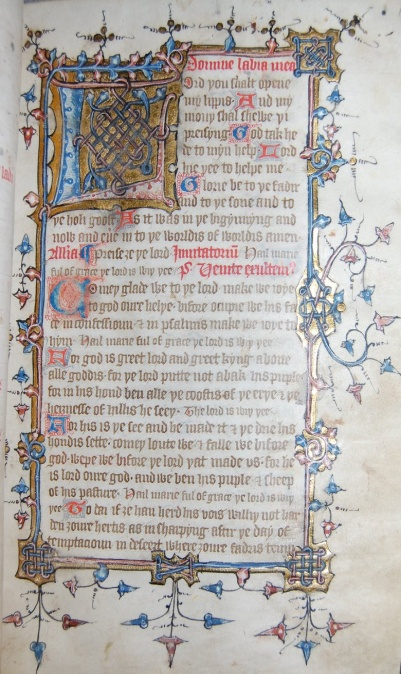 Domine labia mea
Lord you shalt opene
my lippis. And my
mouþ shal shewe þi
preisyng. God take he
de to myn help. Lord
hie þee to helpe me
Glorie be to þe fadir
and to þe sone and to
þe holi goost. As it was in þe bigynnyng and
now and eu in to þe worldis of worldis amen
Allia. Preise ȝe þe lord Inuitatoriu Hail marie
ful of grace þe lord is wiþ þee ps. Venite exultem
Comeþ glade we to þe lord make we ioȝe
to god oure helþe. bifore ocupie we his fa
ce in confessioun. & in psalmis make we ioȝe to
hym. Hail marie ful of grace þe lord is wiþ þee
For god is greet lord and greet kyng aboue
alle goddis. for þe lord putte not abak his puple
for in his hond ben alle þe coostis of þe erþe & þe
heiȝnesse of hillis he seeþ. The lord is wiþ þee
For his is þe see and he made it & þe drie his
hondis sette. comeþ loute we & falle we bifore
god. wepe we bifore þe lord þat made vs. for he
is lord oure god. and we ben his puple & sheep
of his pasture. Hail marie ful of grace þe lord is wiþ
þee To dai if ȝe han herd his vois wilneþ not har
den ȝoure hertis as in sharpyng aftir þe day of
temptacioun in desert where ȝoure fadris temp